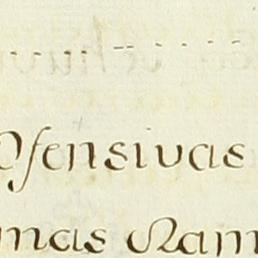 Ofensivas
mas Nam